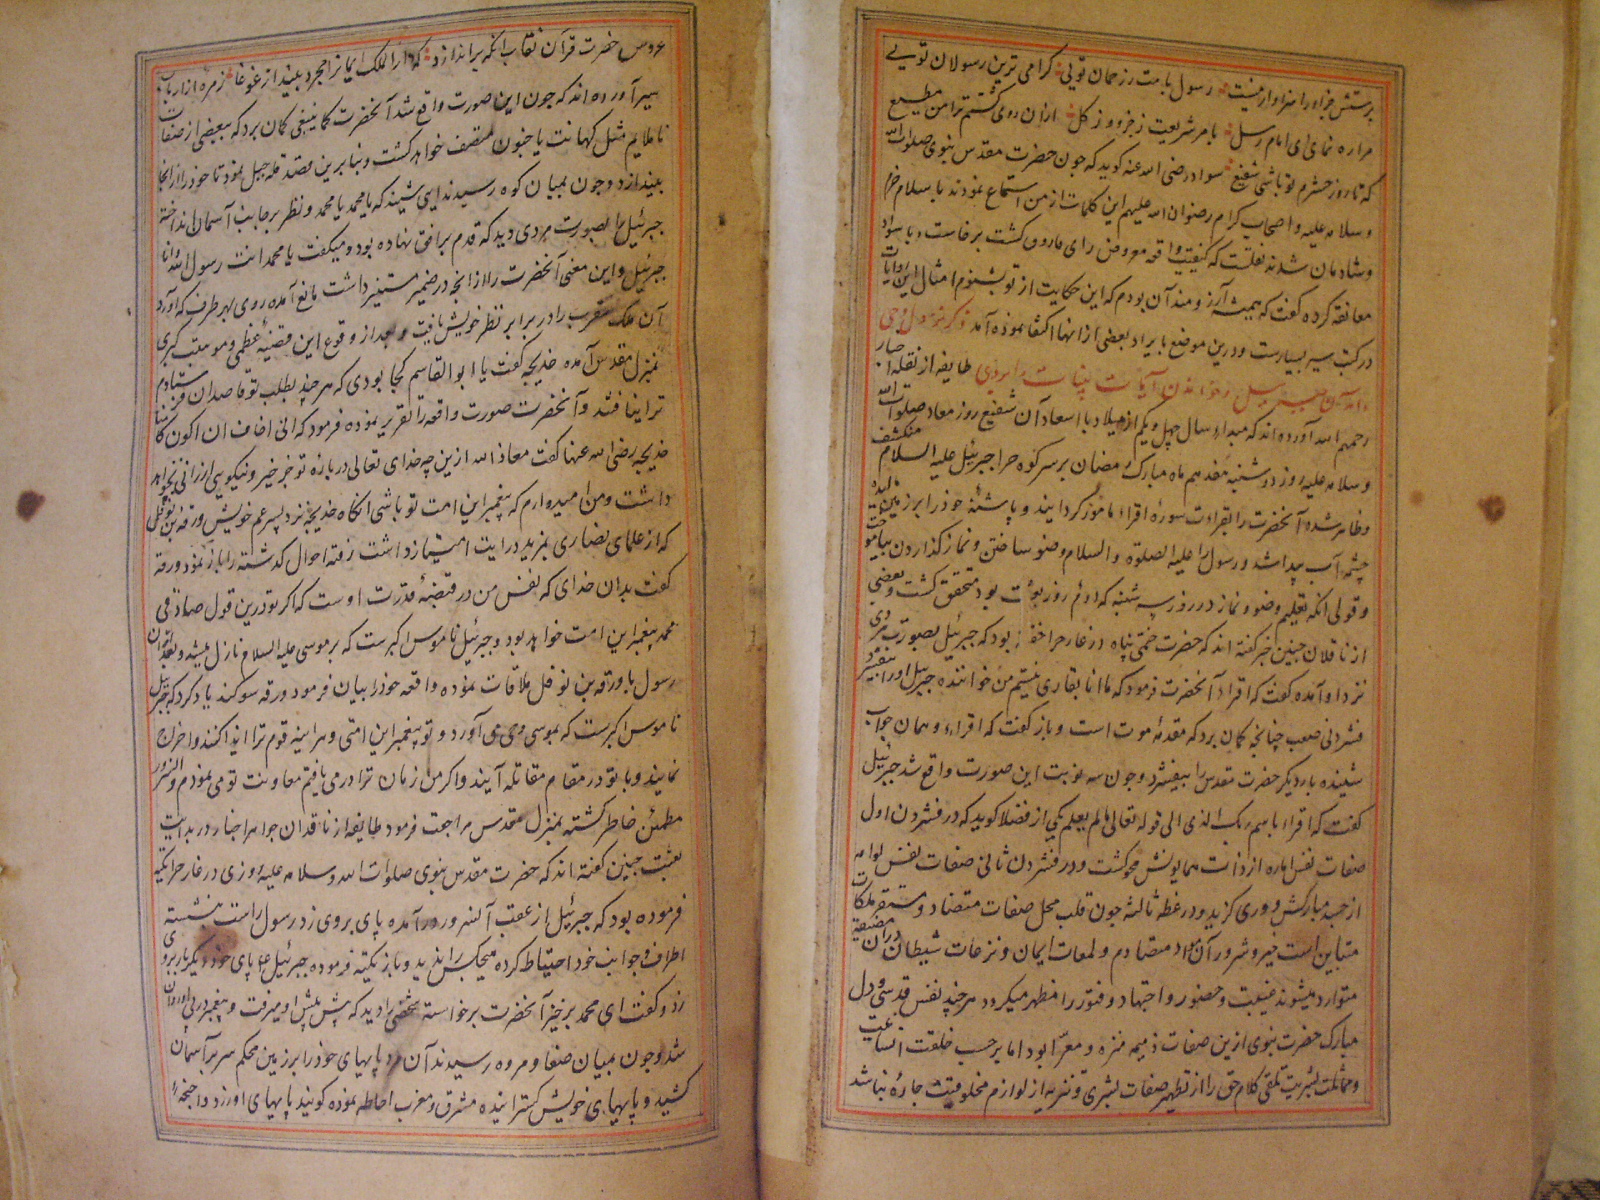 پرستش جز او را سزاوار نیست رسول بامت ز رحمان تویی کرامی ترین رسولان تویی
مرا ره نمای ای امام رسل بامر شریعت ز جزو و ز کل ازان روی کشتم ترا من مطیع
که تا روز حشرم تو باشی شفیع سواد رضی الله عنه کوید که چون حضرت مقدس نبوی صلوات الله
و سلامه علیه و اصحاب کرام رضوان الله علیهم این کلمات از من استماع نمودند باسلام من
و شادمان شدند نقلست که کیفیت واقعه معروض رای فاروق کشت برخاست و با سواد
معانقه کرده کفت که همیشه آرزومند آن بودم که این حکایت از تو بشنوم امثال این روایات
در کتب سیر بسیارست و درین موضع بایراد بعضی از انها اکتفا نموده آمد ذکر نزول وحی
آیات بینات طایفه از نقله اخبار
رحمهم الله آورده اند که مبداء سال چهل و یکم از میلاد با اسعاد آن شفیع روز معاد صلوات الله
و سلامه علیه روز دوشنبه هفدهم ماه مبارک رمضان بر سر کوه حرا جبرئیل علیه السلام منکشف
و ظاهر شده آنحضرت را بقراءت سوره اقراء مامور کردانید و پاشنه خود را بر زمین مالیده
چشمه آب پیدا شد و رسول را علیه الصلوة والسلام وضو ساختن و نماز کذاردن بیاموخت
و قولی انکه تعلیم وضو و نماز در روز سه شنبه که دوم روز بعثت بود متحقق کشت و بعضی
از ناقلان چنین خبر کفته اند که حضرت ختمی پناه در غار حرا خفته بود که جبرئیل بصورت مردی
نزد او آمده کفت که اقراء آنحضرت فرمود که ما انا بقاری نیستم من خواننده جبرئیل او را بیفشرد
فشردنی صعب چنانچه کمان برد که مقدمه موت است و باز کفت که اقراء و همان جواب
شنیده بار دیکر حضرت مقدس را بیفشرد و چون سه نوبت این صورت واقع شد جبرئیل
کفت که اقراء باسم ربک الذی الی قوله تعالی مالم یعلم یکی از فضلا کوید که در فشردن اول
صفات نفس اماره از ذات همایونش محو کشت و در فشردن ثانی صفات نفس لوامه
از جسد مبارکش دوری کزید و در غطه ثالثه چون قلب محل صفات متضاد و مستقر ملکات
متباین است خیر و شر در آن مواد متصادم و لمعات ایمان و نزعات شیطان در آن مضیقه
متوارد میشوند غیبت و حضور و اجتهاد و فتور را مظهر میکردد هر چند نفس قدسی و دل
مبارک حضرت نبوی ازین صفات ذمیمه منزه و معرّا بود اما بر حسب خلقت انسانیت
و مماثلت بشریت تلقی کلام حق را از تطهیر صفات بشری و تنزیه از لوازم مخلوقیت چاره نباشد
عروس حضرت قرآن نقاب انکه براندازد که دارالملک ایمانرا مجرد بیند از غوغا زمره از ارباب
سیر آورده اند که چون این صورت واقع شد آنحضرت کما ینبغی کمان برد که ببعضی از صفات
ناملایم مثل کهانت یا جنون متصف خواهد کشت و بنابرین قصد قله جبل نمود تا خود را از انجا
بیندازد و چون بمیان کوه رسید ندایی شنید که یا محمد یا محمد و نظر بر جانب آسمان انداخته
جبرئیل را بصورت مردی دید که قدم بر افق نهاده بود و میکفت یا محمد انت رسول الله و انا
جبرئیل و این معنی آنحضرت را از انچه در ضمیر مستنیر داشت مانع آمده روی بهر طرف که آورد
آن ملک مقرب را در برابر نظر خویش یافت و بعد از وقوع این قضیه عظمی و موهبت کبری
بمنزل مقدس آمده خدیجه کفت یا ابوالقاسم کجا بودی که هر چند بطلب تو قاصدان فرستادم
ترا نیافتند و آنحضرت صورت واقعه را تقریر نموده فرمود که انی اخاف ان اکون کاهنا
خدیجه رضی الله عنها کفت معاذ الله ازین چه خدای تعالی درباره تو جز خیر و نیکویی ارزانی نخواهد
داشت و من امیدوارم که پیغمبر این امت تو باشی انکاه خدیجه نزد پسر عم خویش ورقه بن نوفل
که از علمای نصاری بمزید درایت امتیاز داشت رفته احوال کذشته را باز نمود ورقه
کفت بدان خدای که نفس من در قبضهٔ قدرت اوست که اکر تو درین قول صادقی
محمد پیغمبر این امت خواهد بود و جبرئیل ناموس اکبرست که بر موسی علیه السلام نازل میشد و بعد از ان
رسول با ورقه بن نوفل ملاقات نموده واقعه خود را بیان فرمود ورقه سوکند یاد کرد که جبرئیل
ناموس اکبرست که بموسی وحی می آورد و تو پیغمبر این امتی و هر اینه قوم ترا ایذا کنند و اخراج
نمایند و با تو در مقام مقاتله آیند و اکر من زمان ترا در می یافتم معاونت تو می نمودم و آنسرور
مطمئن خاطر کشته بمنزل مقدس مراجعت فرمود طایفه از ناقدان جواهر اخبار در بدایت
بعثت چنین کفته اند که حضرت مقدس نبوی صلوات الله و سلامه علیه روزی در غار حرا تکیه
فرموده بود که جبرئیل از عقب آنسرور درآمده پای بروی زد رسول راست بنشسته
اطراف و جوانب خود احتیاط کرده هیچکس را ندید و باز تکیه فرموده جبرئیل عم پای خود دیکر بار بروی
زد و کفت ای محمد برخیز آنحضرت برخاسته شخصی را دید که پیش پیش او میرفت و پیغمبر در پی او روان
شد و چون بمیان صفا و مروه رسیدند آن مرد پایهای خود را بر زمین محکم سر بر آسمان
کشید و پایهای خویش کسترانیده مشرق و مغرب احاطه نموده کویند پایهای او زرد و اجنحه